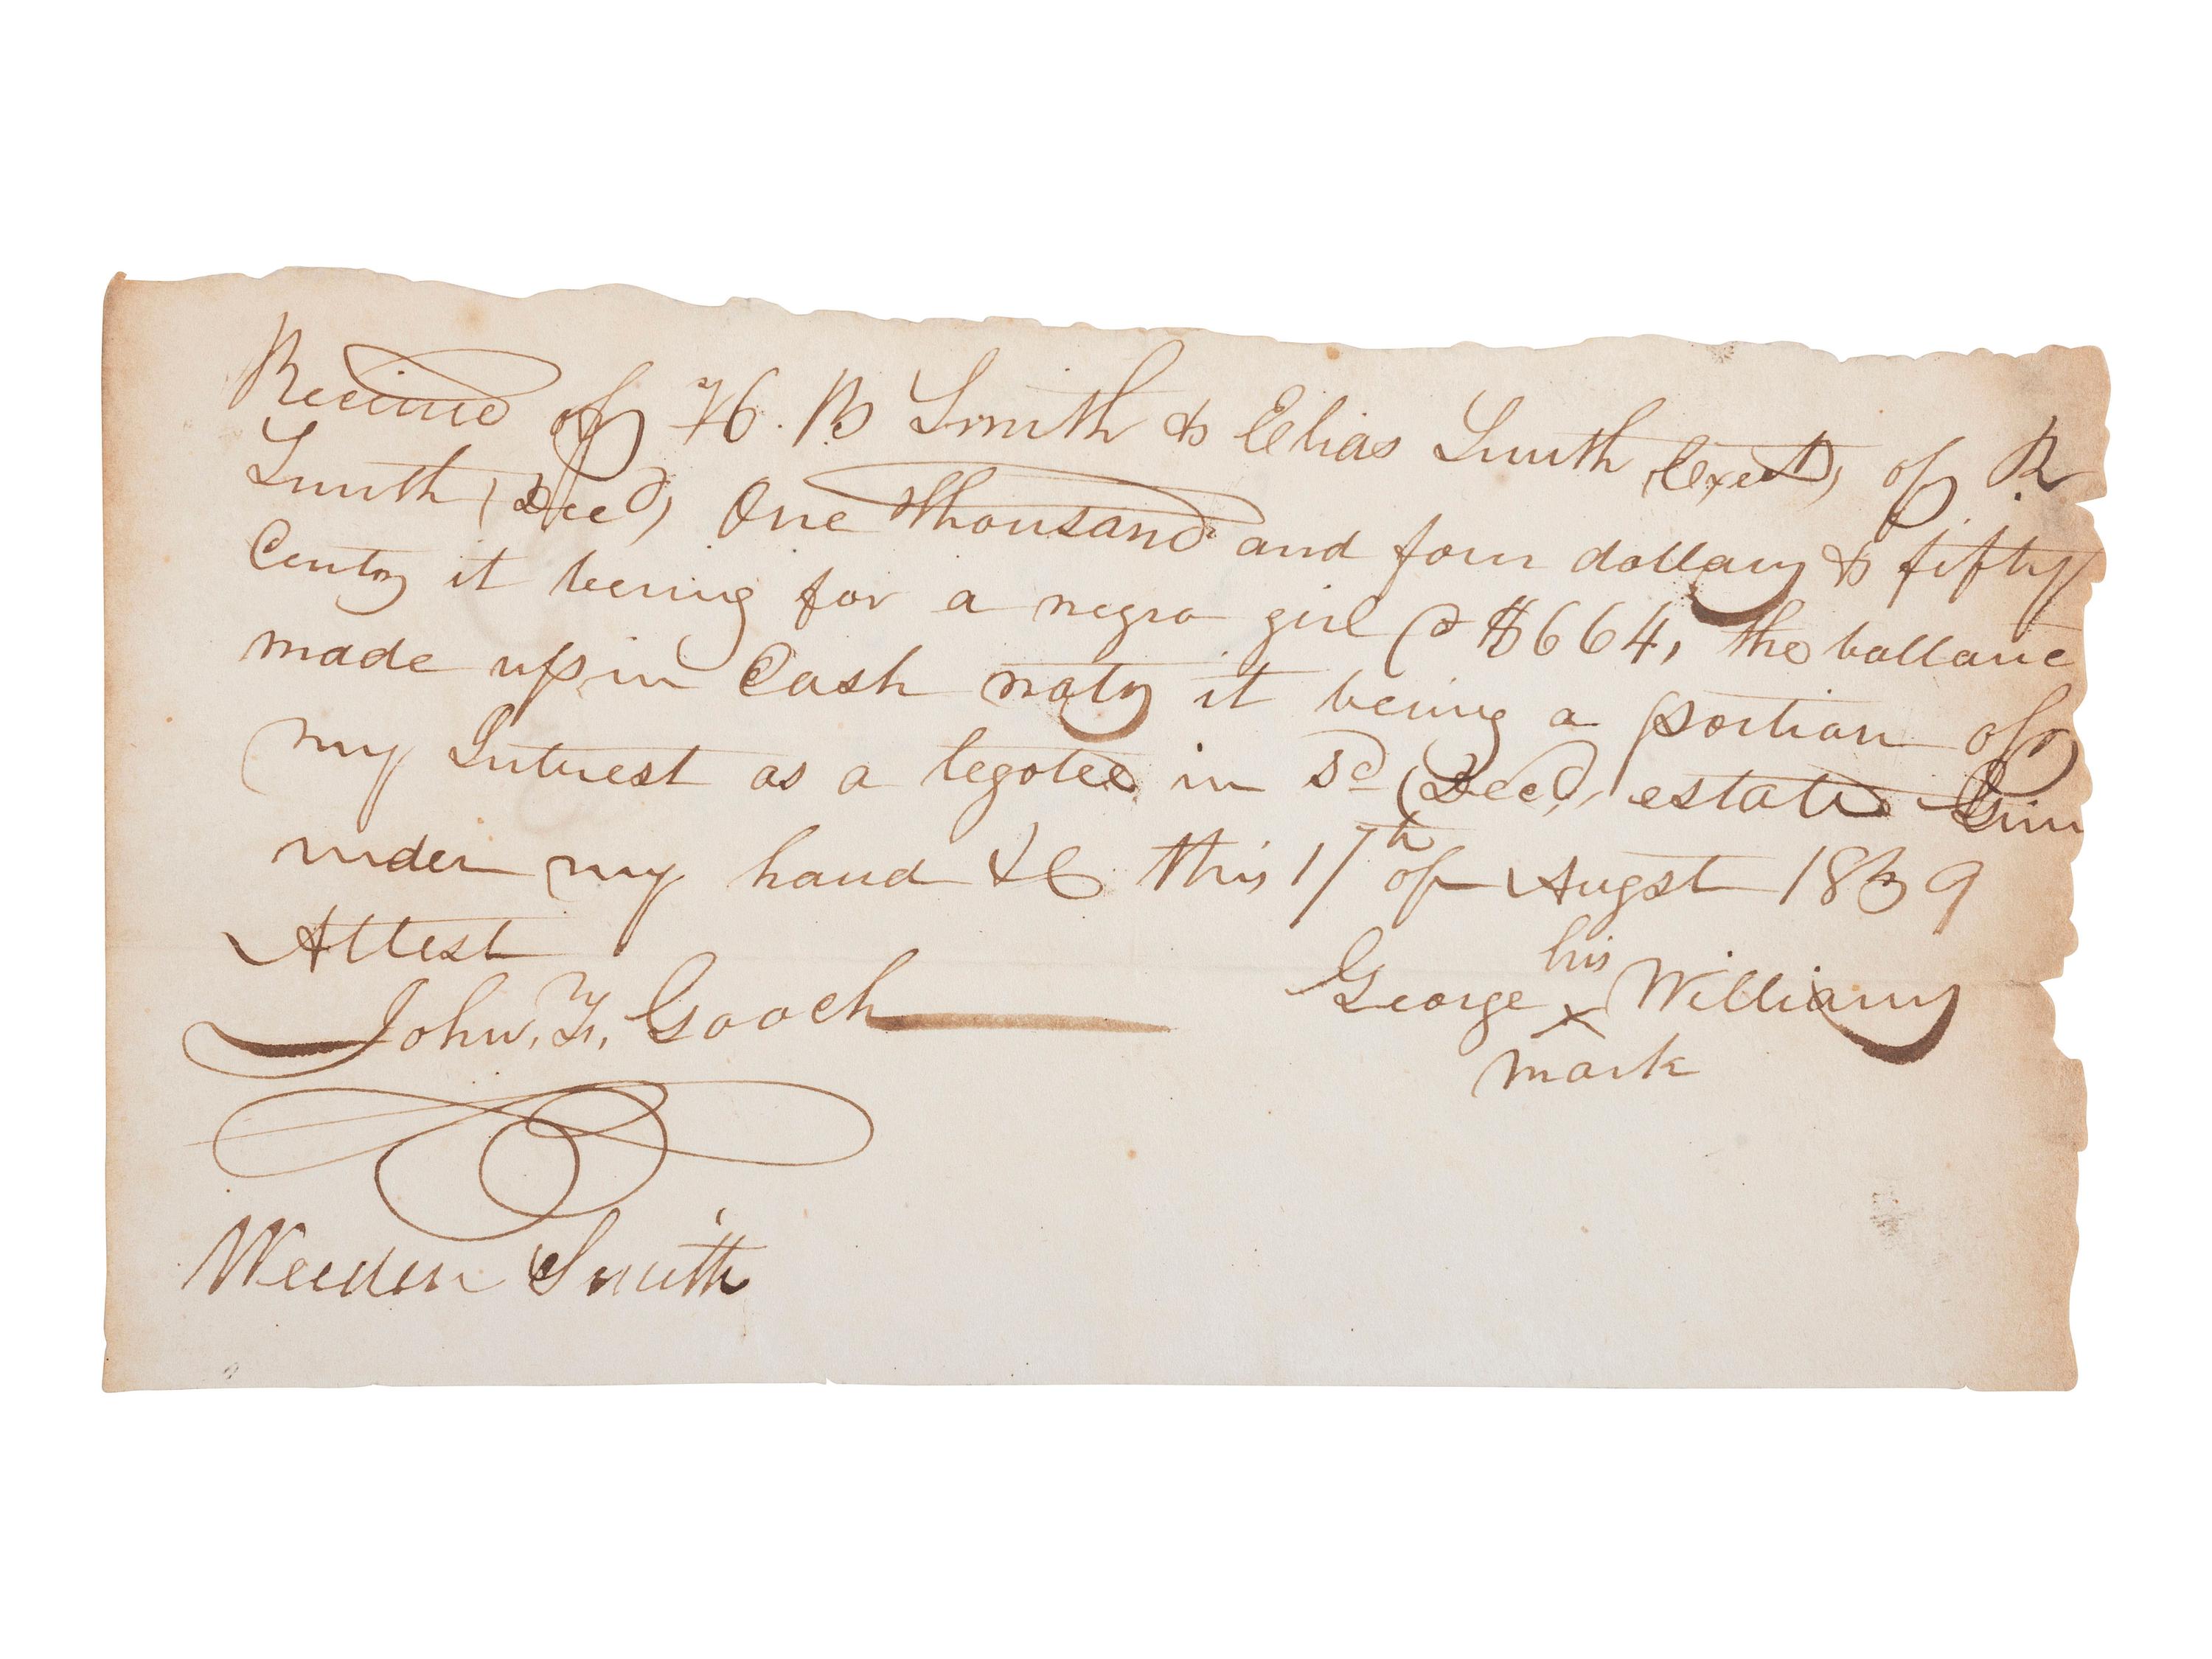 Received of H. B Smith & Elias Smith (Exert) of R
Smith (Deed) One thousand and four dollars & fifty
Cents it being for a negro girl @ $664, the ballance
made up in Cash nots it being a portion of
my Intrest as a legotee in sd (Deed) estate Given
under my hand &C this 17th of Augst 1839
Attest
John, F, Gooch
George his X mark Williams
Weeden Smith